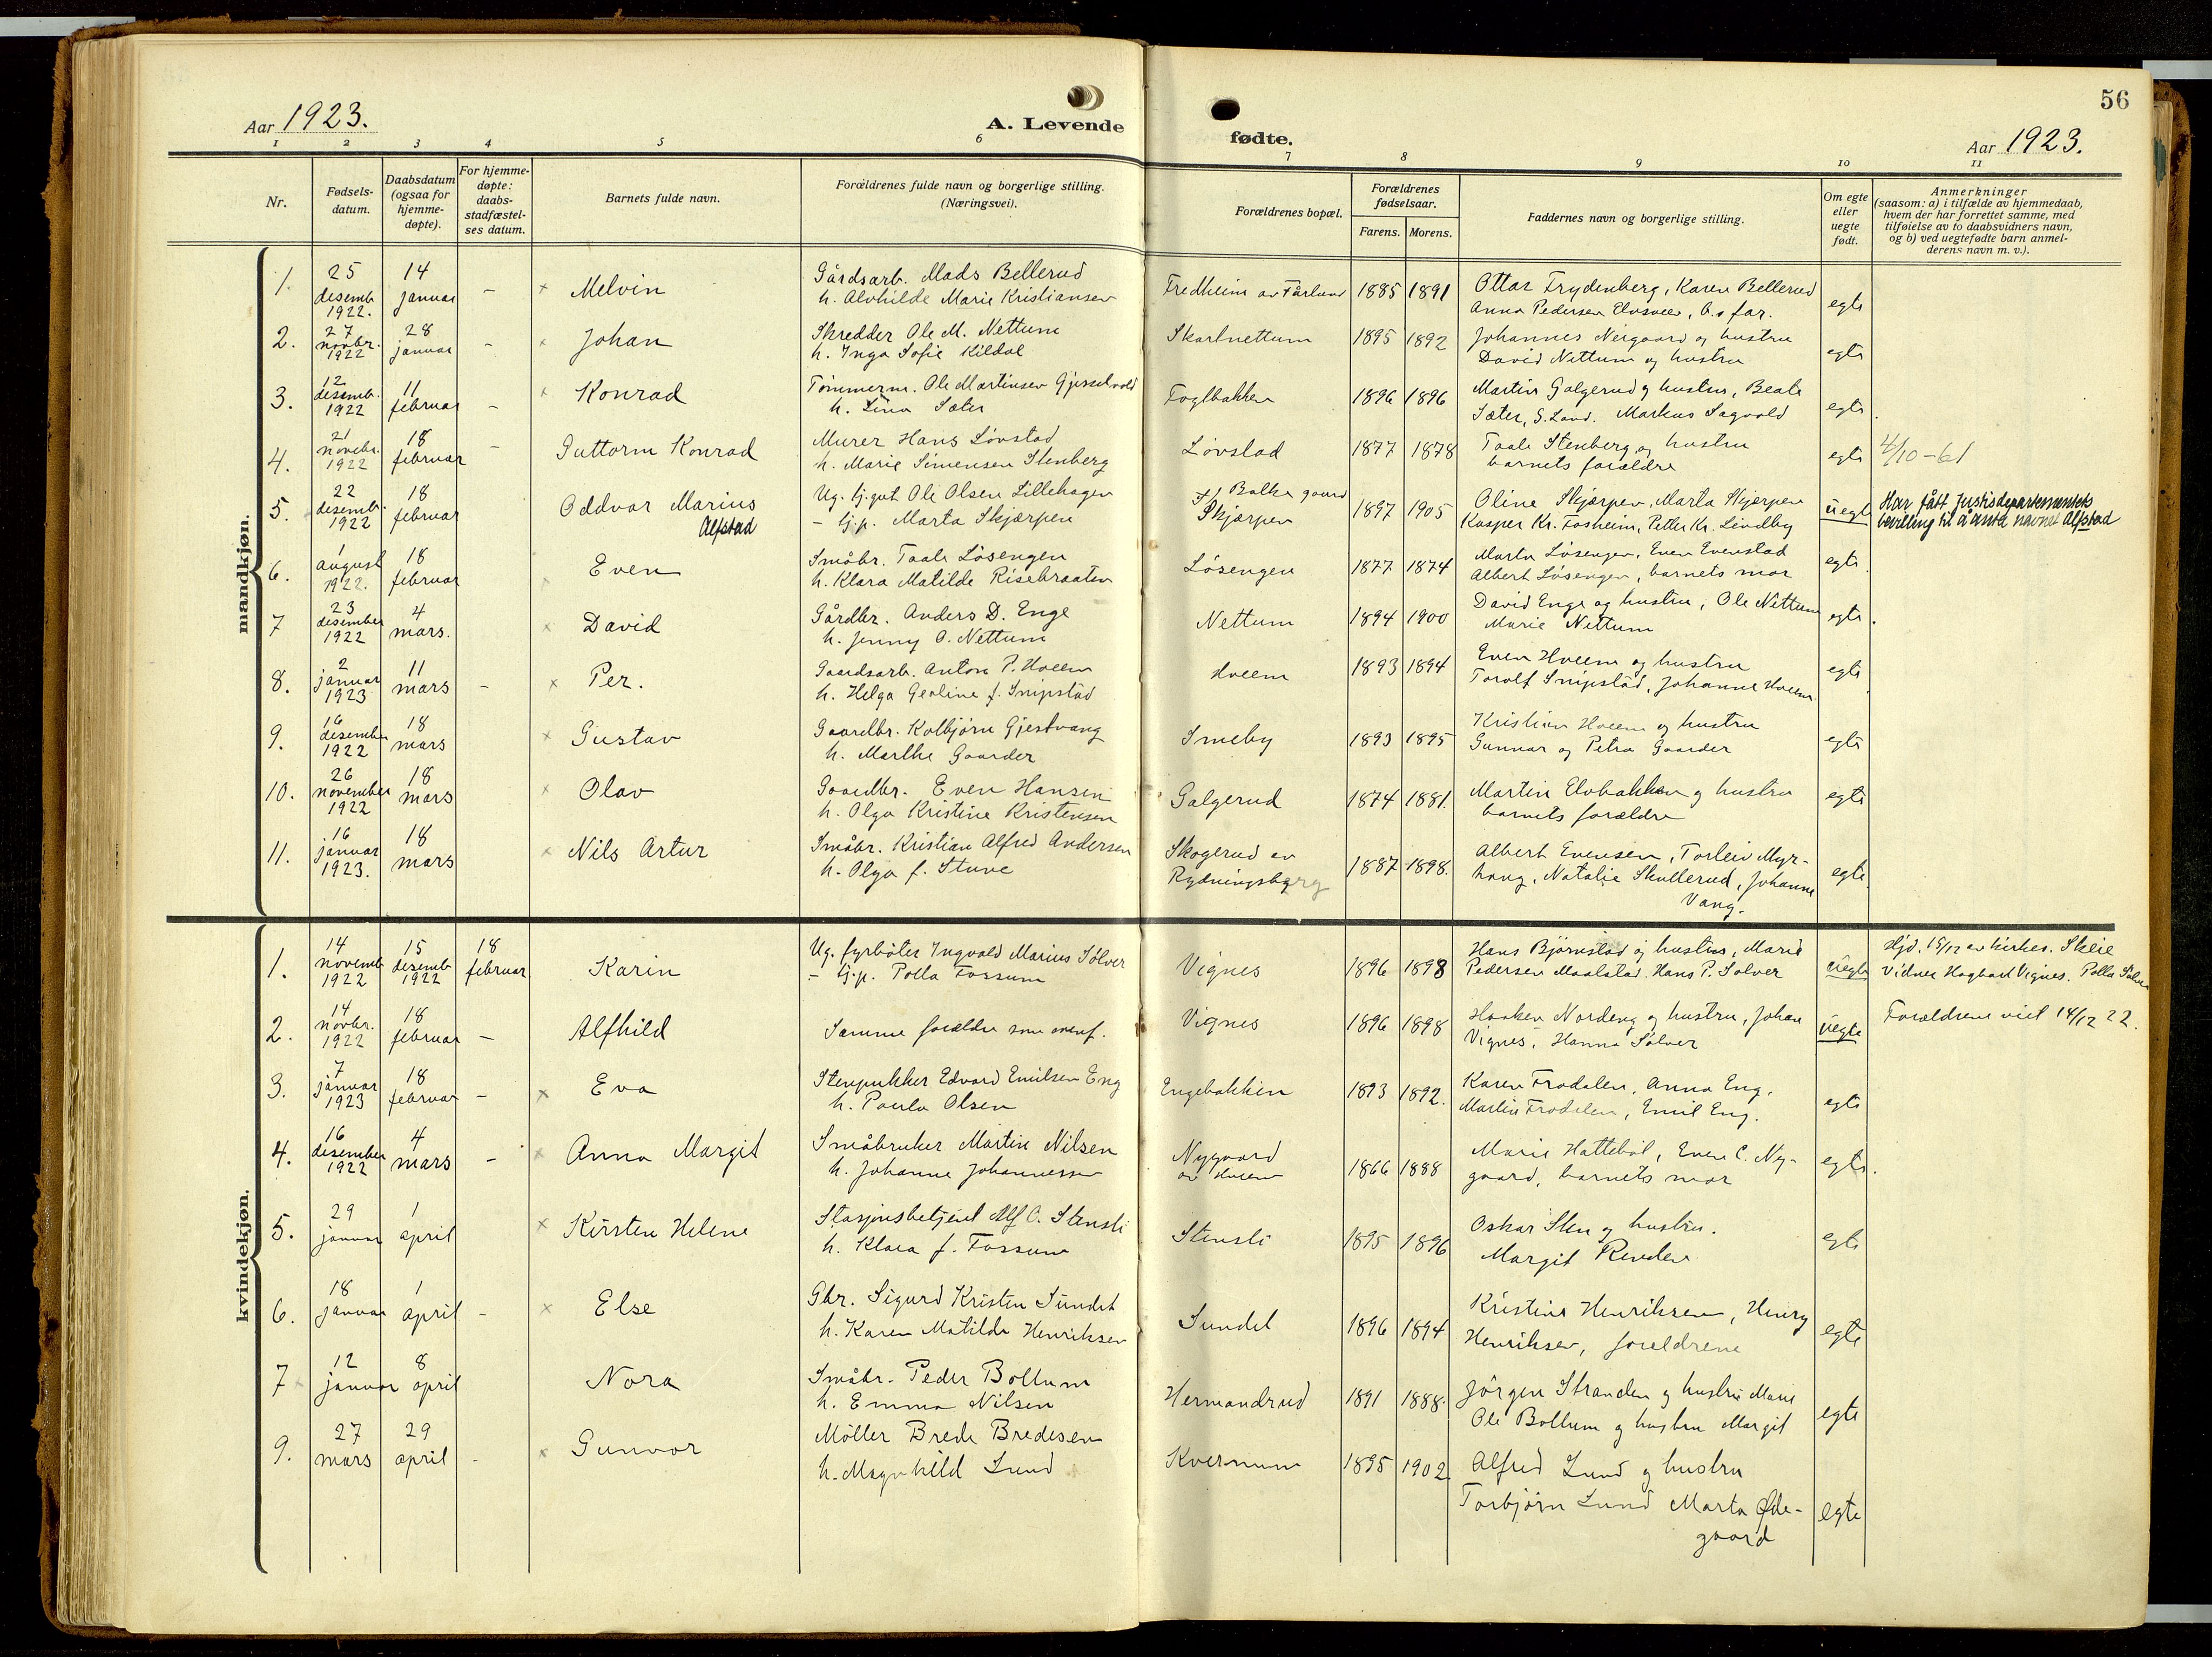 56
Aar 1923.
A. Levende
fødte.
Aar 1923.
1 2 3 4 5 6 7 8 9 10 11
Nr.
Fødsels-
datum.
Daabsdatum
(ogsaa for
hjemme-
døpte).
For hjemme-
døpte:
daabs-
stadfæstel-
ses datum.
Barnets fulde navn.
Forældrenes fulde navn og borgerlige stilling.
(Næringsvei).
Forældrenes bopæl.
Forældrenes
fødselsaar.
Farens. Morens.
Faddernes navn og borgerlige stilling.
Om egte
eller
uegte
født.
Anmerkninger
(saasom: a) i tilfælde av hjemmedaab,
hvem der har forrettet samme, med
tilføielse av to daabsvidners navn,
og b) ved uegtefødte barn anmel-
derens navn m. v.).
mandkjøn.
1. 25 desemb. 1922. 14 januar - × Melvin
Gårdsarb. Mads Bellerud
h. Alvhilde Marie Kristiansen
Fredheim av Fårlund 1885 1891
Ottar Frydenberg, Karen Bellerud
Anna Pedersen Elvsveen, B.s far.
egte
2. 27 novbr. 1922 28 januar - × Johan
Skredder Ole M. Nettum
h. Inga Sofie Kildal
Skartnettum 1895 1892
Johannes Neigaard og hustru
David Nettum og hustru
egte
3. 12 desemb. 1922 11 februar - × Konrad
Tømmerm. Ole Martinsen Gjesselvold
h. Lina Sæter
Foglbakken 1896 1896
Martin Galgerud og hustru, Beate
Sæter, S. Land. Markus Sagvold
egte.
4. 21 novebr. 1922 18 februar - Guttorm Konrad
Murer Hans Løvstad
h. Marie Simensen Stenberg
Løvstad 1877 1878
Taale Stenberg og hustru
barnets forældre
egte 4/10-61
5. 22 desemb. 1922 18 februar Oddvar Marius
Alfstad
Ug. tj.gut Ole Olsen Lillehagen
- tj.p. Marta Skjærpen
Balke gaard
Skjærpen 1897 1905
Oline Skjærpen, Marta Skjærpen
Kasper Kr. Fosheim, Petter Kr. Lindby
uegte
Har fått Justisdepartementets
bevilling til å anta navnet Alfstad
6. 1 august 1922. 18 februar Even
Småbr. Taale Løsengen
h. Klara Matilde Risebraaten
Løsengen 1877 1874
Marta Løsengen, Even Evenstad
Albert Løsengen, barnets mor
egte.
7 23 desember 1922 4 mars. × David
Gårdbr. Anders D. Enge
h. Jenny O. Nettum
Nettum 1894 1900
David Enge og hustru, Ole Nettum
Marie Nettum
egte.
8. 2 januar 1923 11 mars - × Per.
Gaardsarb. Anton P. Hveem
h. Helga Geoline f. Snipstad
Hveem 1893 1894
Even Hveem og hustru
Torolf Snipstad, Johanne Hveem
egte
9. 16 desember 1922 18 mars × Gustav
Gaardbr. Kolbjørn Gjestvang
h. Marthe Gaarder
Smeby 1893 1895
Kristian Hveem og hustru
Gunnar og Petra Gaarder
egte
10. 26 november 1922 18 mars × Olav
Gaardbr. Even Hansen
h. Olga Kristine Kristensen
Galgerud 1874 1881.
Martin Elvbakken og hustru
barnets forældre
egte
11. 16 januar 1923. 18 mars × Nils Artur
Småbr. Kristian Alfred Andersen
h. Olga f. Stuve
Skogerud av
Rydningsberg 1887 1898.
Albert Evensen, Torleiv Myr-
haug, Natalie Skullerud, Johanne
Vang.
egte.
kvindekjøn.
1. 14 novemb 1922 15 desemb 1922 18 februar Karin
Ug. fyrbøter Ingvald Marius Sølver
- tj.p. Polla Fossum
Vignes 1896 1898
Hans Bjørnstad og hustru, Marie
Pedersen Maalstad. Hans P. Sølver
uegte
Hjd. 15/12 av kirkes. Skeie
Vidner Hagbart Vignes. Polla Sølver
2. 14 novbr. 1922 18 februar - Alfhild
Samme forældre som ovenf.
Vignes 1896 1898
Haaken Nordeng og hustru, Johan
Vignes, Hanna Sølver
uegte
Forældrene viet 14/12 22.
3. 7 januar 1923 18 februar - × Eva
Stenpukker Edvard Emilsen Eng
h. Paula Olsen
Engebakken 1893 1892.
Karen Frodalen, Anna Eng,
Martin Frodalen, Emil Eng.
egte
4. 16 desember 1922 4 mars - × Anna Margit
Småbruker Martin Nilsen
h. Johanne Johannessen
Nygaard
av Hveem 1866 1888
Marie Hattebøl, Even C. Ny-
gaard, barnets mor
egte.
5. 29 januar 1 april × Kirsten Helene
Stasjonsbetjent Alf O. Stensli
h. Klara f. Fossum
Stensli 1895 1896
Oskar Sten og hustru.
Margit Renden
egte
6. 18 januar 1 april - × Else
Gbr. Sigurd Kristen Sundet
h. Karen Matilde Henriksen
Sundet 1896 1894
Kristine Henriksen, Henry
Henriksen, foreldrene
egte
7 12 januar 8 april Nora
Småbr. Peder Bollum
h. Emma Nilsen
Hermandrud 1891 1888.
Jørgen Stranden og hustru Marie
Ole Bollum og hustru Margit
egte
9. 27 mars 29 april - × Gunvor
Møller Brede Bredesen
h. Magnhild Lund
Kvernum 1895 1902
Alfred Lund og hustru
Torbjørn Lund Marta Øde-
gaard
egte